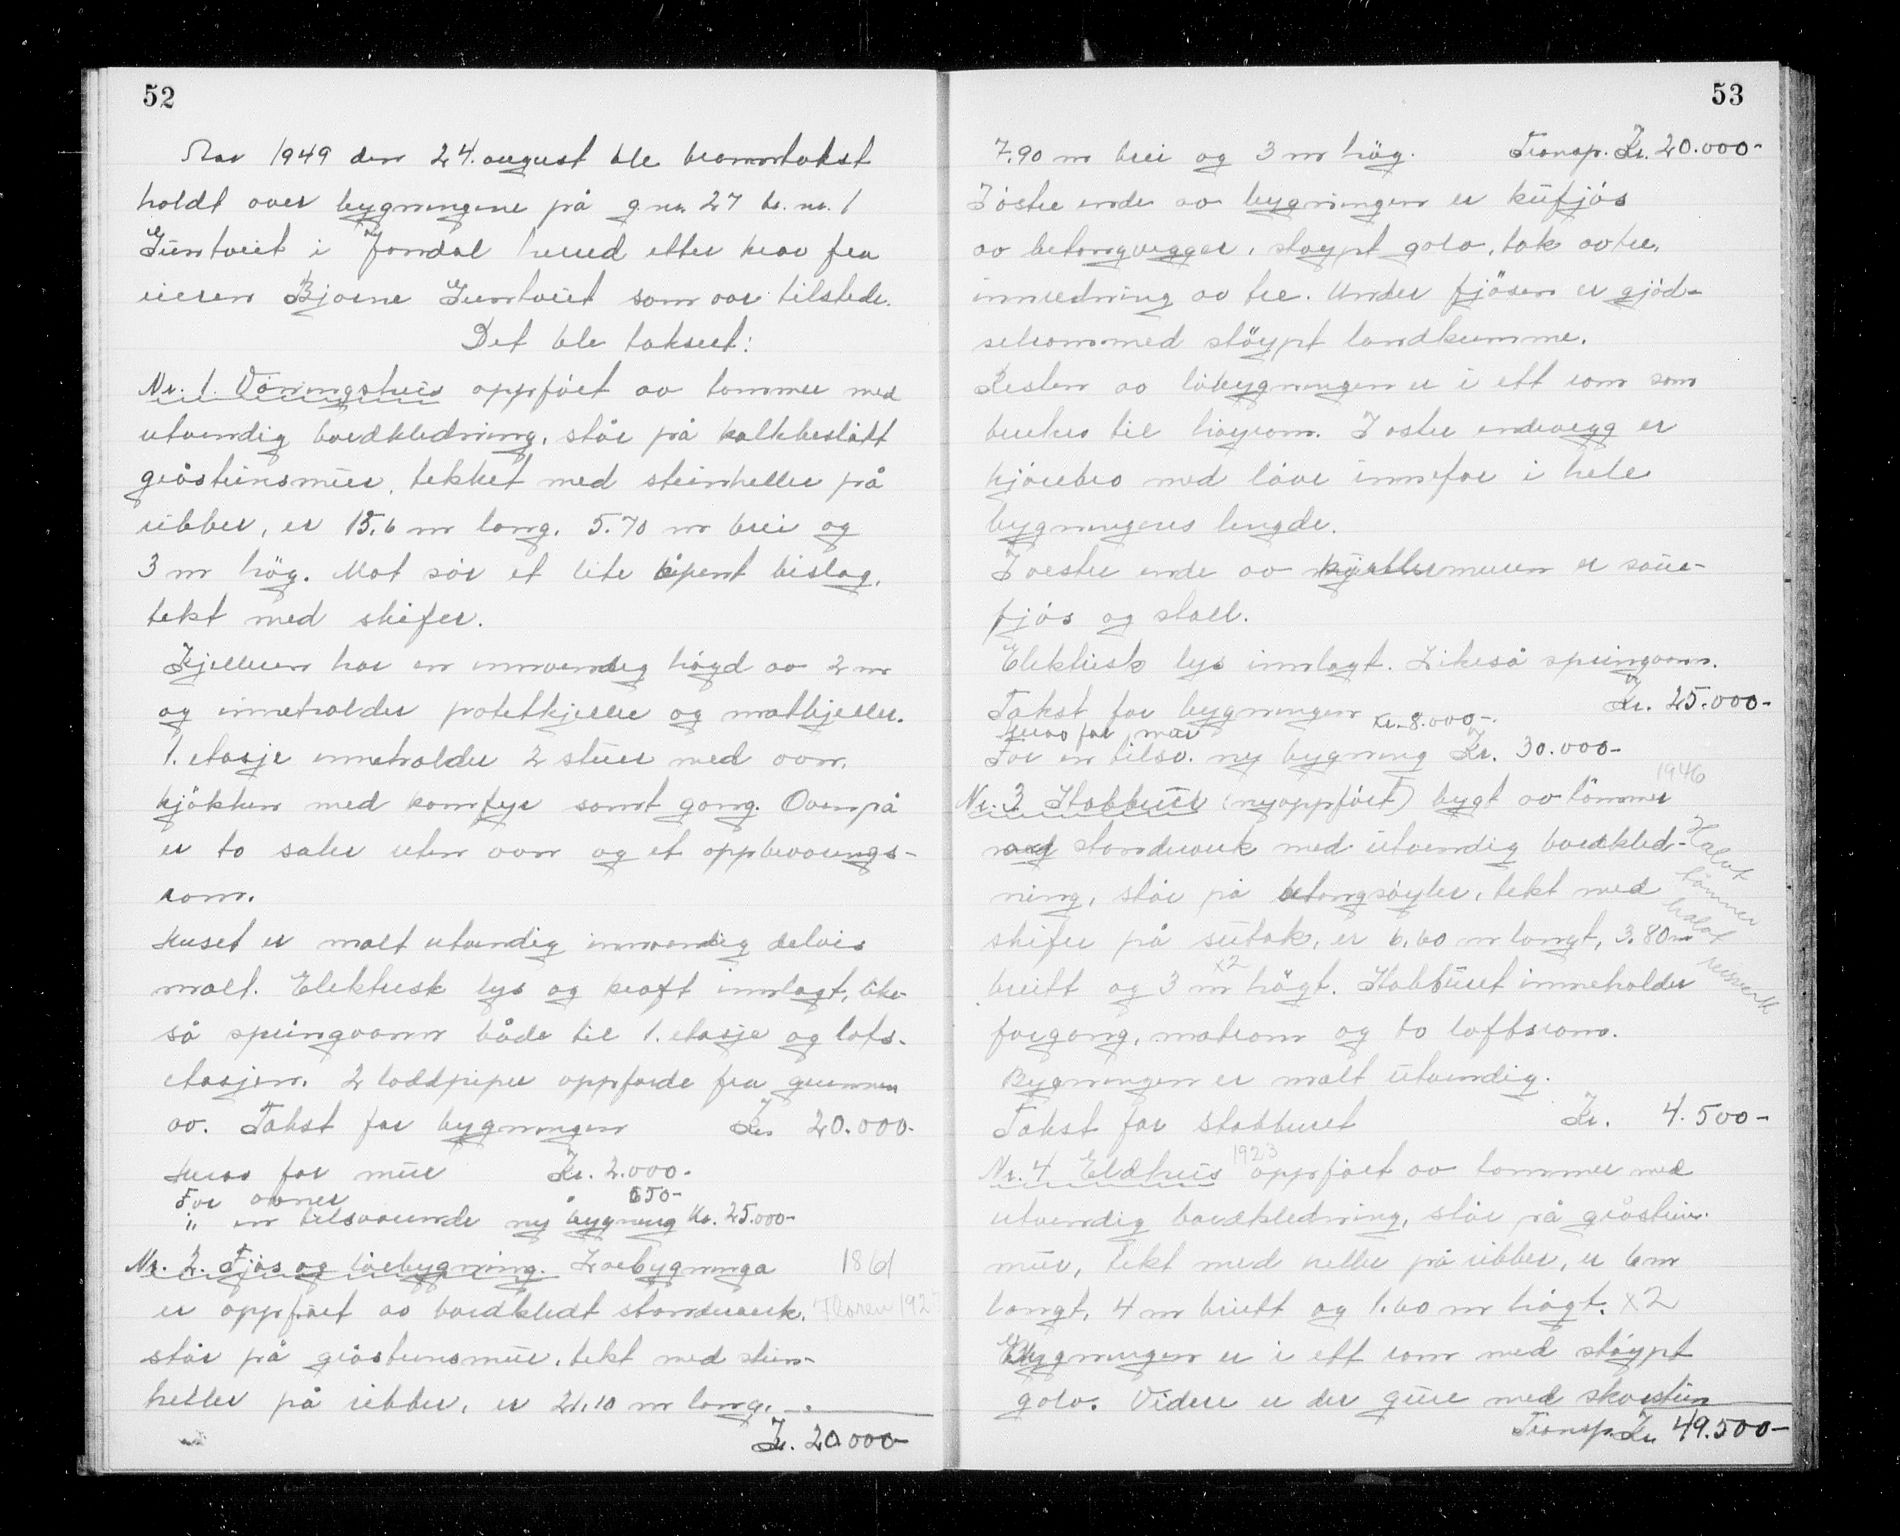 52
Aar 1949 den 24. august ble branntakst
holdt over bygningene på g.nr. 27 br. nr. 1
Guntveit i Jondal herred etter krav fra
eieren Bjarne Guntveit som var tilstede.
Det ble taksert:
Nr. 1. Våningshus oppført av tømmer med
utvendig bordkledning, står på kalkbeslått
gråsteinsmur, tekket med steinheller på
ribber, er 15,6 m lang, 5.70 m brei og
3 m høg. Mot sør et lite åpent bislag,
tekt med skifer.
Kjelleren har en innvendig høgd av 2 m
og inneholder potetkjeller og matkjeller.
1. etasje inneholder 2 stuer med ovn,
kjøkken med komfyr samt gang. Ovenpå
er to saler uten ovn og et oppbevarings-
rom.
Huset er malt utvendig innvendig delvis
malt. Elektrisk lys og kraft innlagt, like-
så springvann både til 1. etasje og lofts-
etasjen. 2 loddpiper oppførde fra grunnen
av. Takst for bygningen Kr. 20.000-
Herav for mur Kr. 2.000-
For ovner 650-
" en tilsvarende ny bygning Kr. 25.000-
Nr. 2. Fjøs og løebygning. Løebygninga 1861
er oppført av bordkledt standverk, Floren 192
står på gråsteinsmur, tekt med stein-
heller på ribber, er 21,10 m lang,
Kr. 20.000-
53
7,90 m brei og 3 m høg. Transp. Kr. 20.000-
I østre ende av bygningen er kufjøs
av betongvegger, støypt golv, tak av tre,
innredning av tre. Under fjøsen er gjød-
selrom med støypt landkumme.
Resten av løbygningen er i ett rom som
brukes til høyrom. I østre endevegg er
kjørebro med låve innefor i hele
bygningens lengde.
I vestre ende av kjellermuren er saue-
fjøs og stall.
Elektrisk lys innlagt. Likeså springvann.
Takst for bygningen Kr. 25.000-
Herav for mur Kr. 8.000-
For en tilsv. ny bygning Kr. 30.000-
1946
Nr. 3 Stabbur (nyoppført) bygt av tømmer
og standverk med utvendig bordkled-
ning, står på betongsøyler, tekt med
skifer på sutak, er 6,60 m langt, 3.80 m
Halvt tømmer halvt reisverk
x2
breitt og 3 m høgt. Stabburet inneholder
forgang, matrom og to loftsrom.
Bygningen er malt utvendig.
Takst for stabburet Kr. 4.500-
1923
Nr. 4 Eldhus oppført av tømmer med
utvendig bordkledning, står på gråstein-
mur, tekt med heller på ribber, er 6 m
langt, 4 m breitt og 1.60 m høgt. x2
Bygningen er i ett rom med støypt
golv. Videre er der grue med skorstein
Transp. Kr. 49.500-